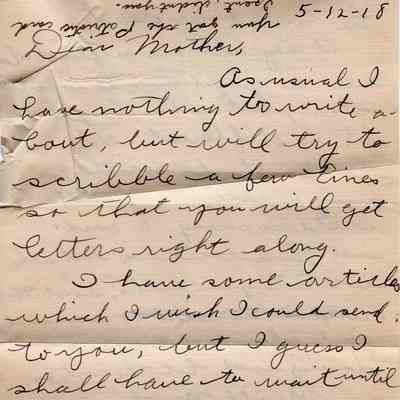 you got the Patriotic card
I sent, didnt you.
5-17-18
Dear Mother,
As usual I
have nothing to write a-
bout, but will try to
scribble a few lines
so that you will get
letters right along.
I have some articles
which I wish I could send
to you, but I guess I
shall have to wait until